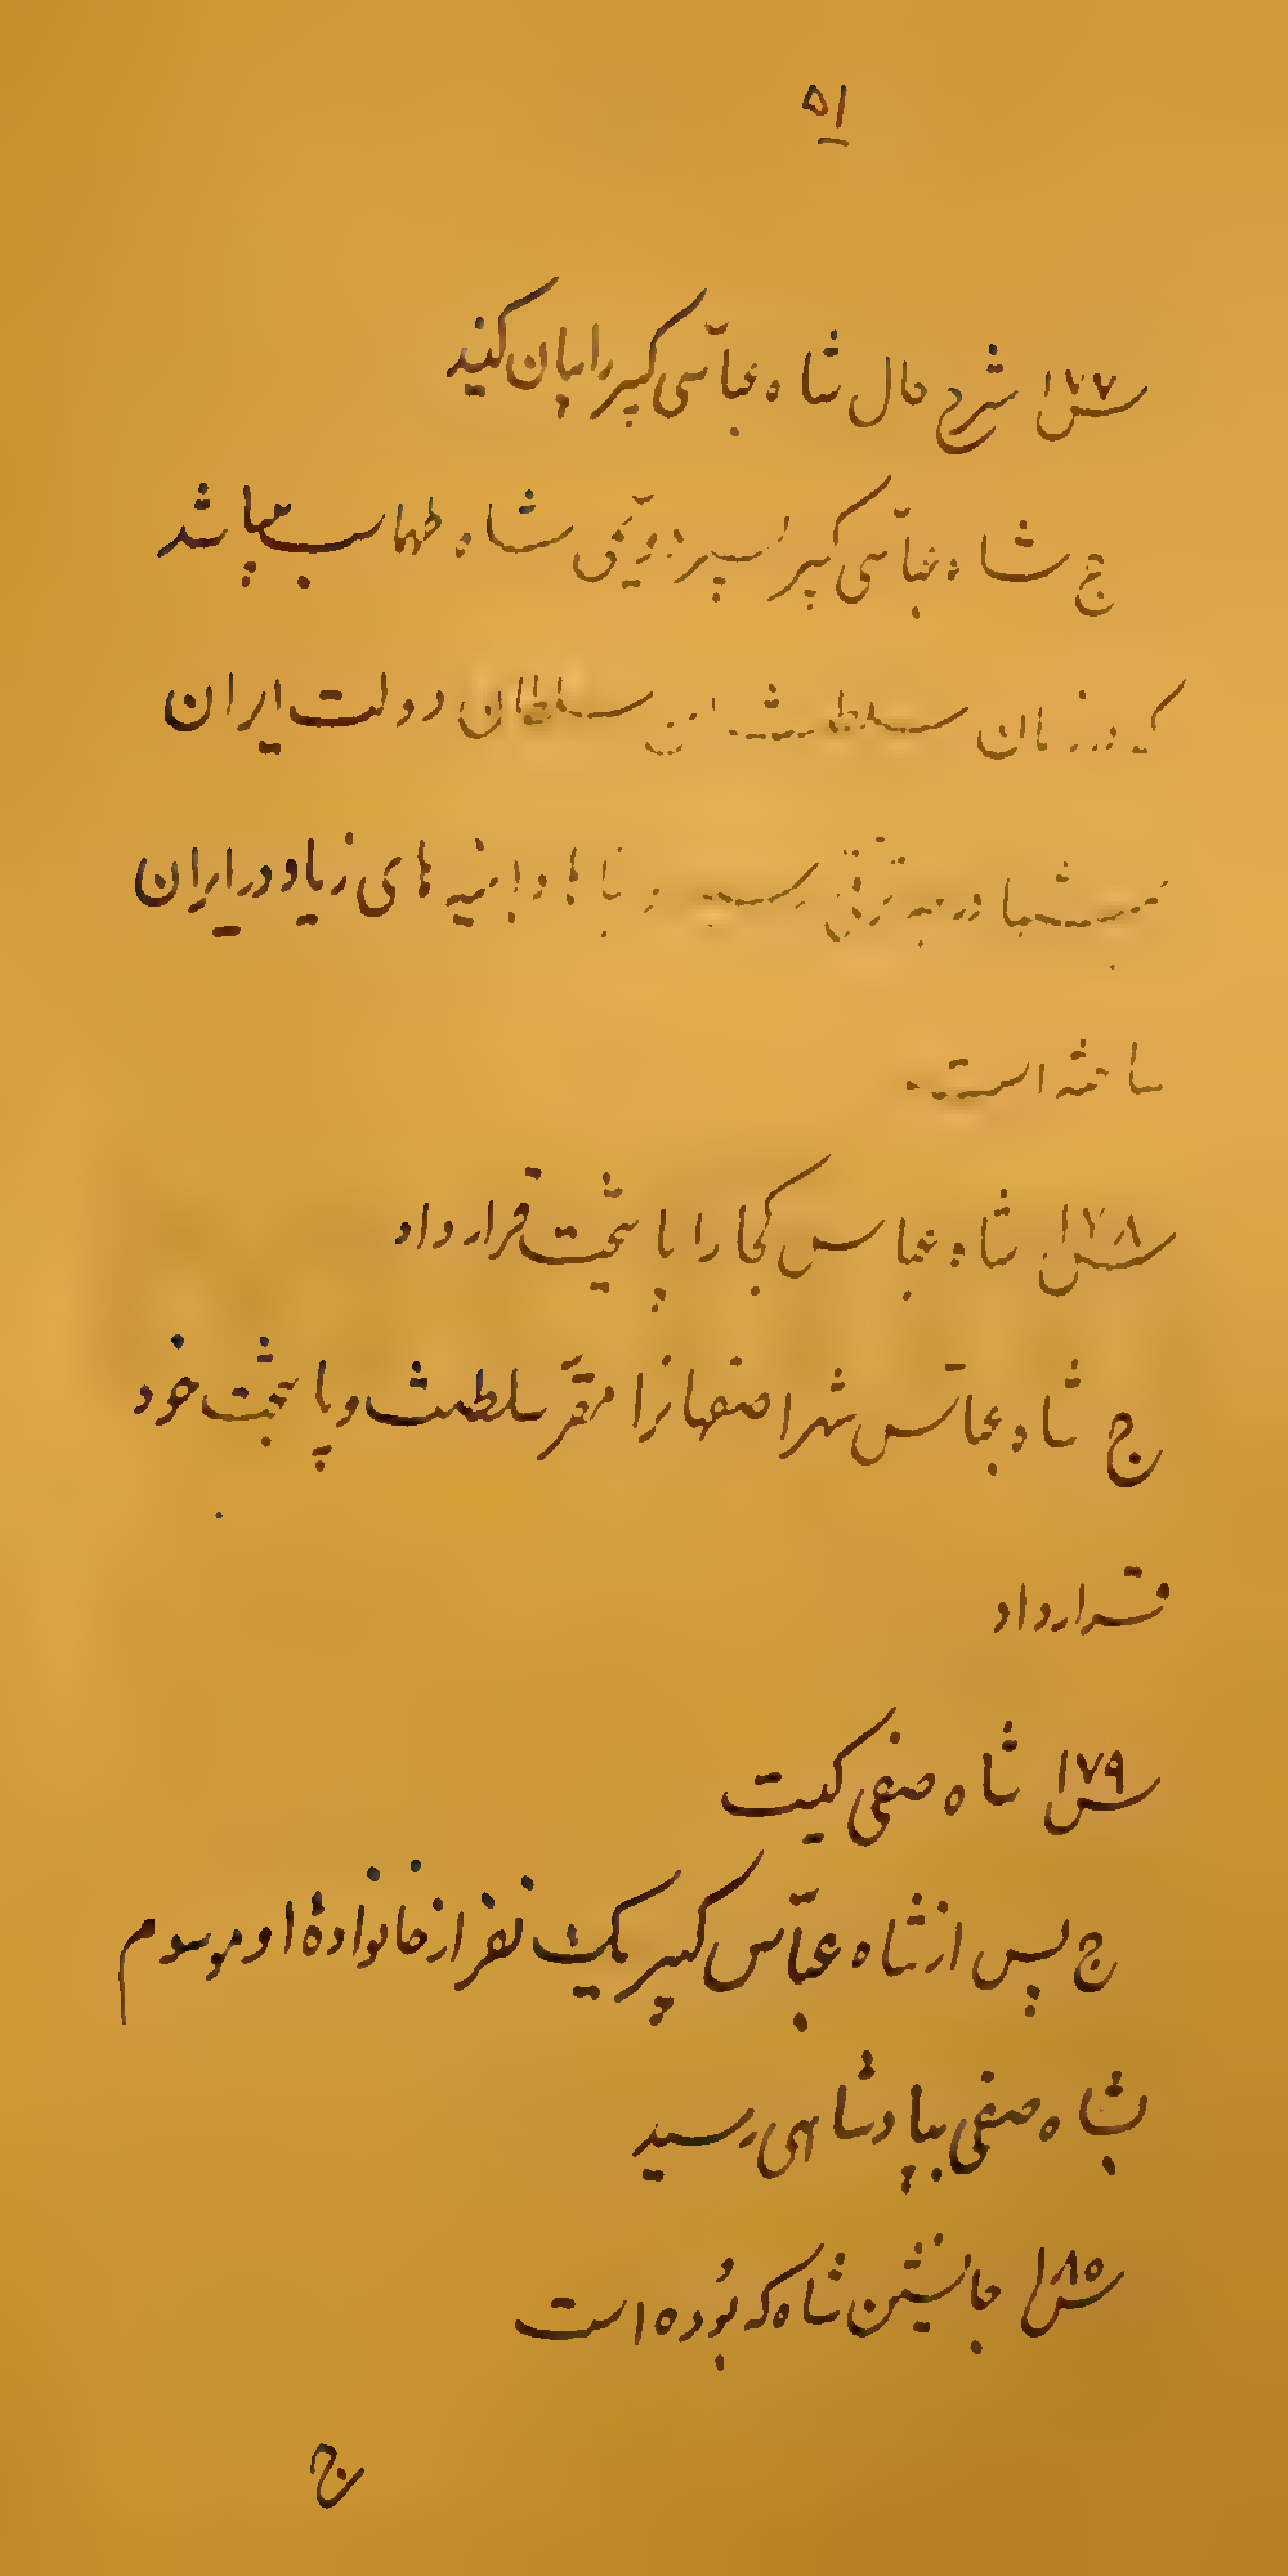 ۵۱
س ۱۷۷ شرح حال شاه عبّاس کبیر را بیان کنید
ج شاه عبّاس کبیر پسر دویّمی شاه طهماسب میباشد
که در زمان سلطنت این سلطان دولت ایران
بترقی رسید و بناها و ابنیه های زیاد در ایران
ساخته است.
س ۱۷۸ شاه عباس کجا را پایتخت قرار داد
ج شاه عبّاس شهر اصفهانرا مقرّ سلطنت و پایتخت خود
قرار داد
س ۱۷۹ شاه صفی کیست
ج پس از شاه عبّاس کبیر یک نفر از خانوادهٔ او موسوم
بشاه صفی بپادشاهی رسید
س ۱۸۰ جانشین شاه که بوده است
ج